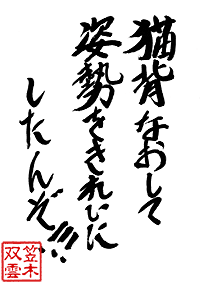 猫背なおして
姿勢をきれいに
したんぞ!!!
笠木
双雲